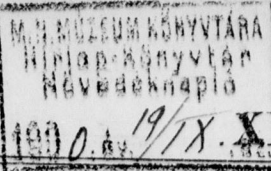 M. N. MUZEUM KÖNYVTÁRA
Hirlap-Könyvtár
Növedéknapló
1900. év. 19/IX.